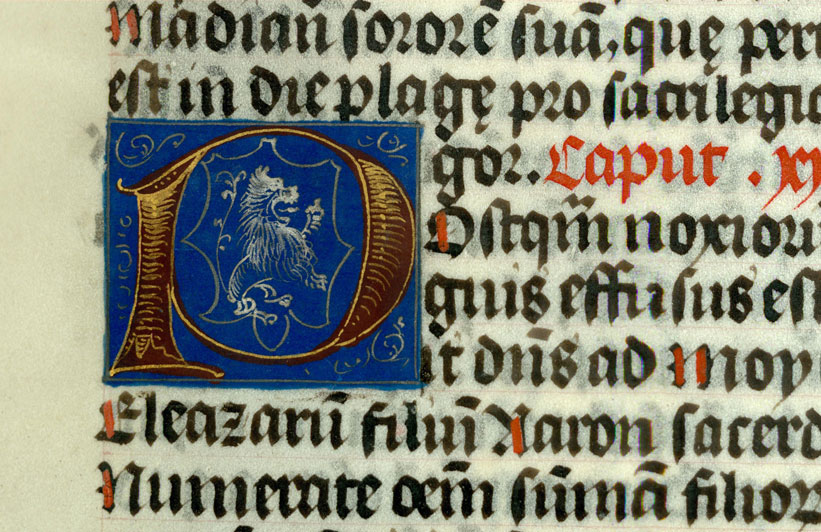 Madian̄ sororē suā, quę peri
est in die plagę pro sacrilegio
gor. Caput . xx
POstqm̄ noxioru
guis effusus est
it dn̄s ad Moy
Eleazarū filiū Aaron sacerd
Numerate oēm sūmā filior